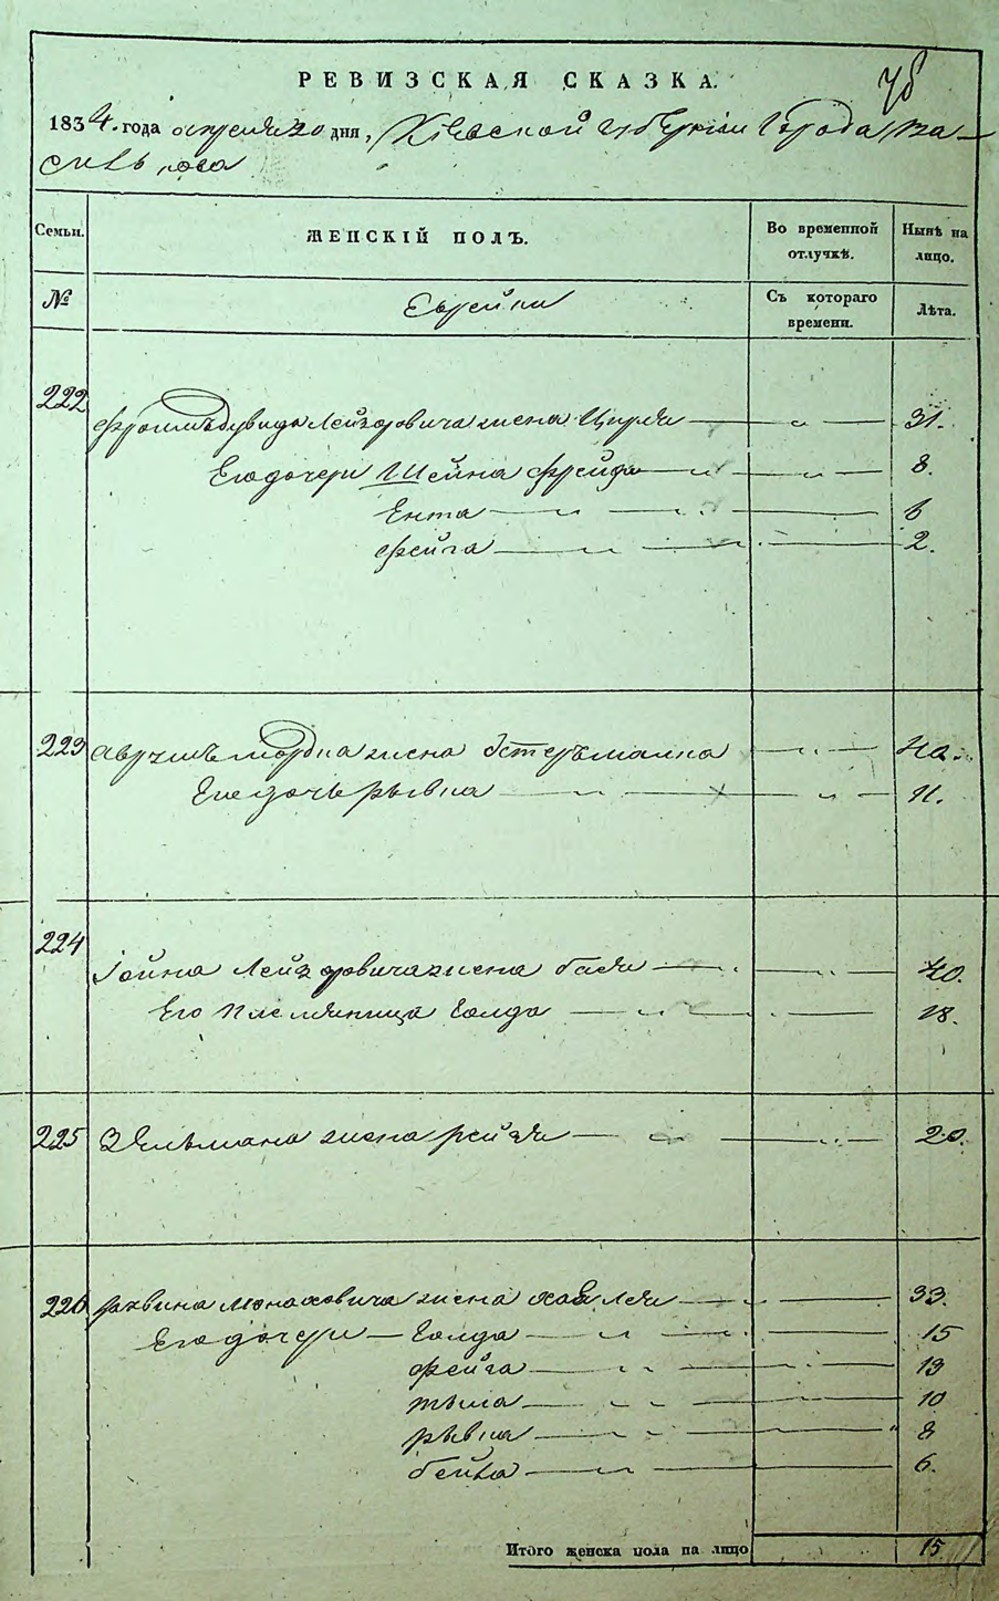 РЕВИЗСКАЯ СКАЗКА.
1834. года апреля 20 дня, Кіевской губерніи города Ва-
силькова
Семьи.
ЖЕНСКІЙ ПОЛЪ.
Во временной
отлучкѣ.
Нынѣ на
лицо.
№
Еврейки
Съ котораго
времени.
Лѣта.
222
Лейзоровича жена Цирля 31.
Его дочери Шейна Фрейда 8.
Ента 6
фейга 2.
223 мордка жена Естеръ малка
Его дочь рывка 11.
224
Іойна Лейзоровича жена бася 40.
Его племянница Голда 18.
225 Зельмана жена рейзя 20.
226 жена хая лея 33.
Его дочери Голда 15
фейга 13
10
рывка 8
бейла 6.
Итого женска пола на лицо 15